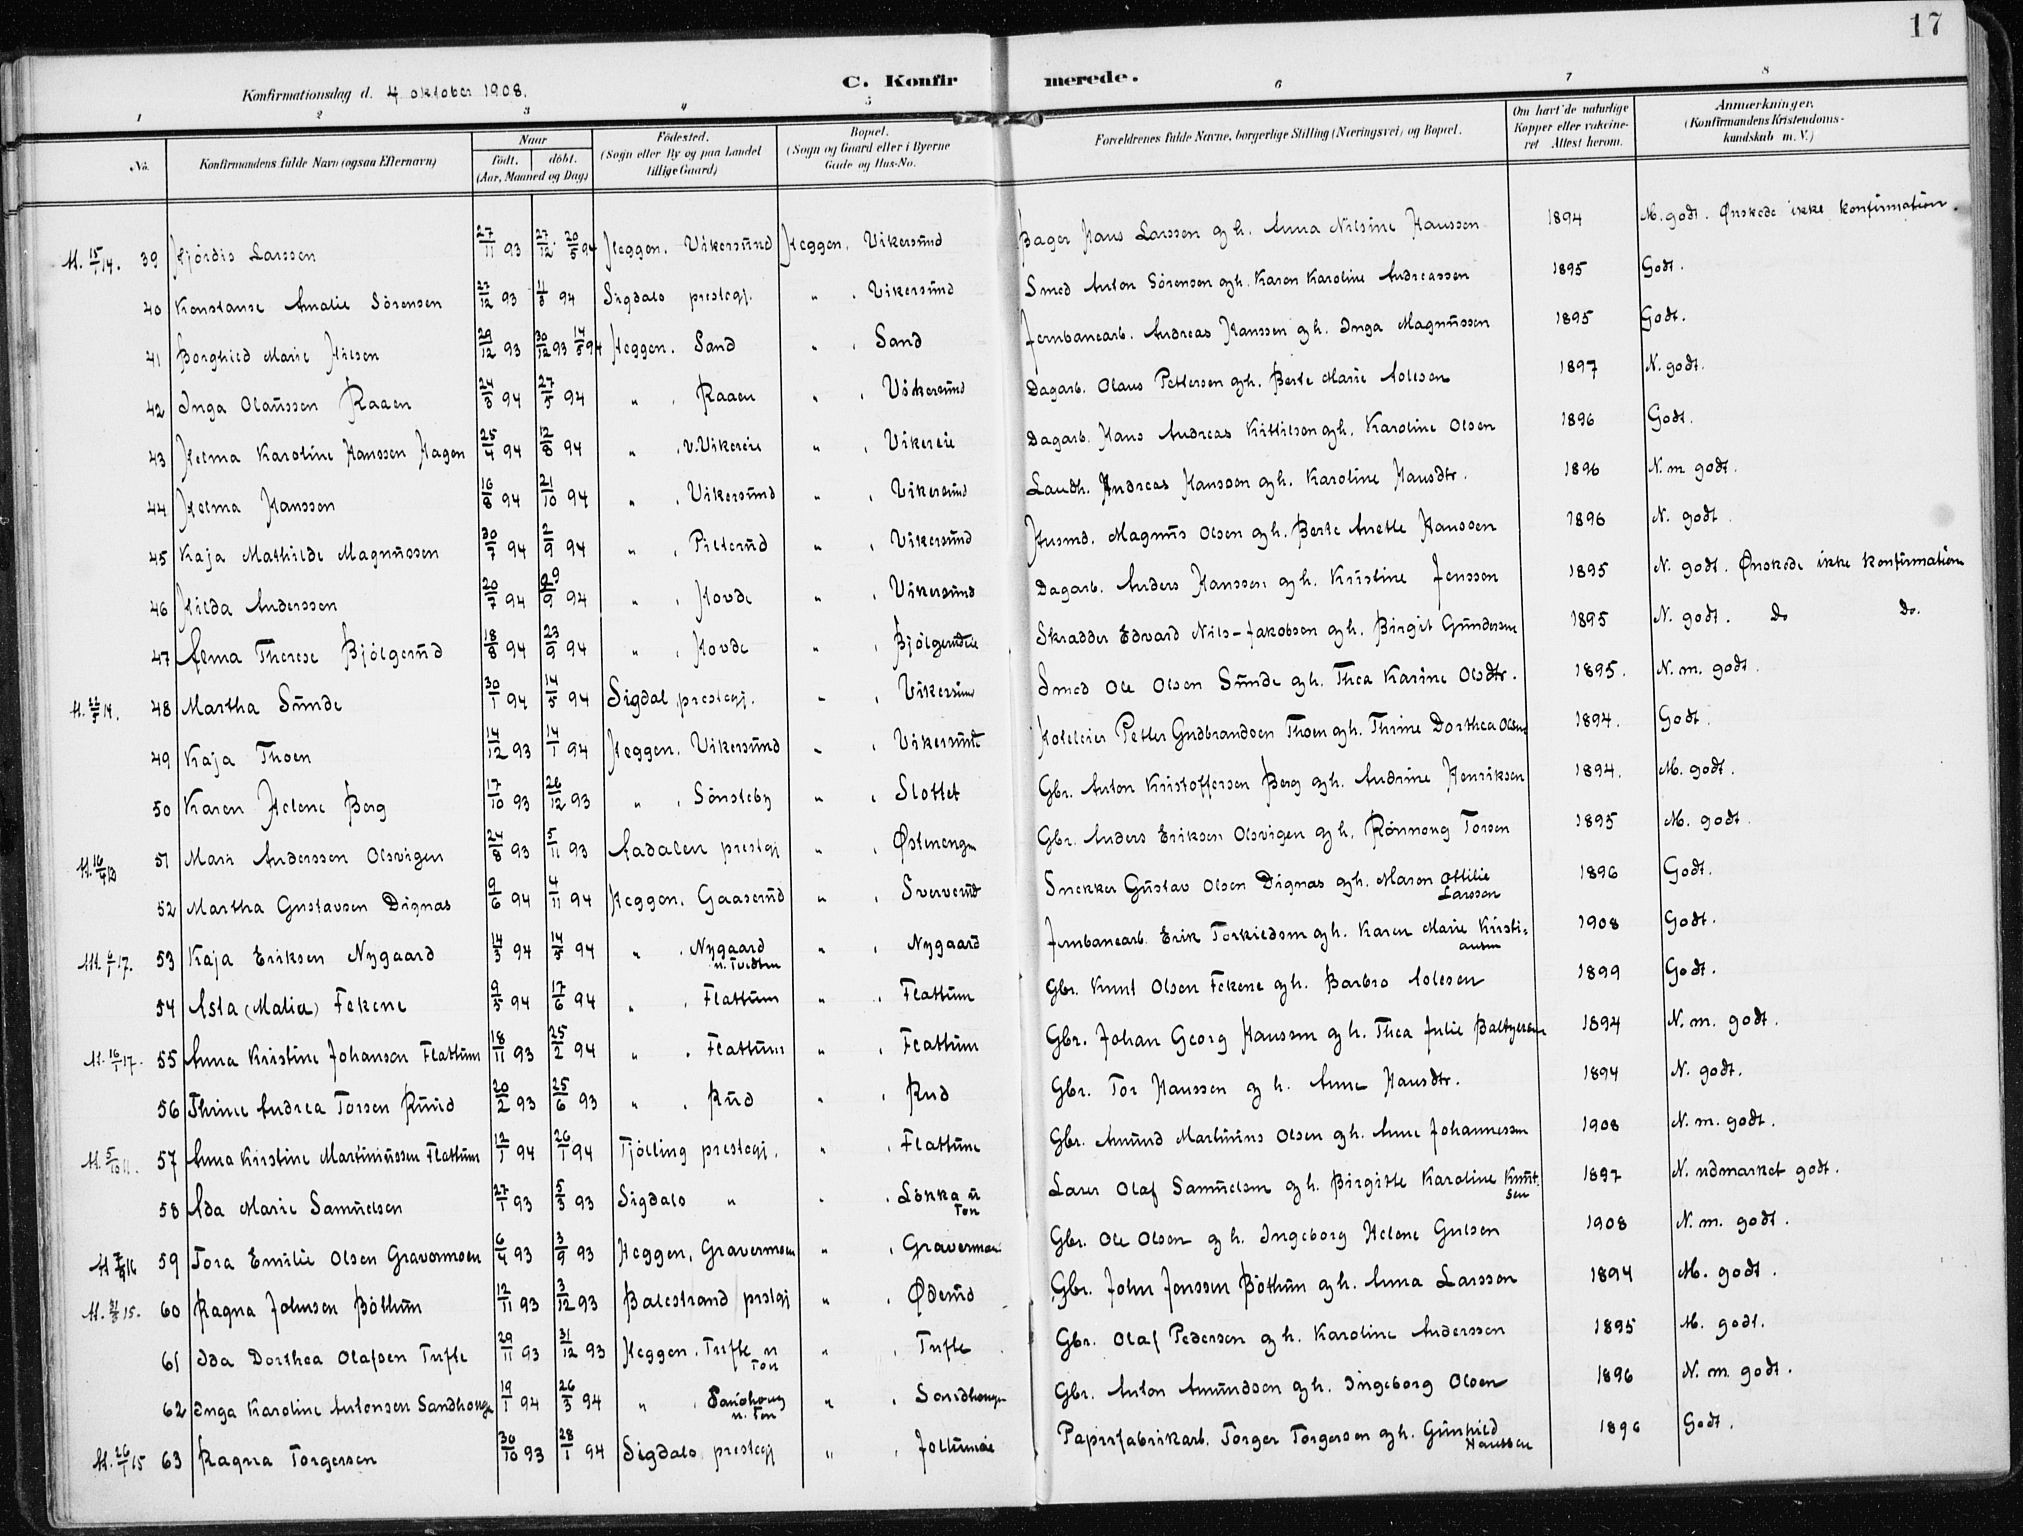 17
Konfirmationsdag d. 4 oktober 1908.
C. Konfirmerede.
1 2 3 4 5 6 7 8
No. Konfirmandens fulde Navn (ogsaa Efternavn) Naar født. døbt. (Aar, Maaned og Dag) Fødested. (Sogn eller By og paa Landet tillige Gaard) Bopæl. (Sogn og Gaard eller i Byerne Gade og Hus-No. Forældrenes fulde Navne, borgerlige Stilling (Næringsvei) og Bopæl. Om havt de naturlige Kopper eller vakcineret Attest herom. Anmærkninger. (Konfirmandens Kristendomskundskab m. V.)
M. 15/1 14. 39 Hjördis Larssen 27/11 93 27/12 20/5 94 Heggen. Vikersund Heggen. Vikersund Bager Hans Larssen og h. Anna Nilsine Hanssen 1894 M. godt. Ønskede ikke konfirmation.
40 Konstanse Amalie Sörensen 23/12 93 94 Sigdals prestegj. " . Vikersund Smed Anton Sörensen og h. Karen Karoline Andreassen 1895 Godt.
41 Borghild Marie 29/12 93 30/12 93 14/5 94 Heggen. Sand " . Sand Jernbanearb. Andreas Hanssen og h. Inga Magnussen 1895 Godt.
42 Inga Olaussen Raaen 24/3 94 27/5 94 " . Raaen " . Vikersund Dagarb. Olaus Pettersen og h. Berte Marie Aslesen 1897 N. godt.
43 Helma Karoline Hanssen Hagen 25/4 94 12/8 94 " . v. Vikereie " . Vikereie Dagarb. Hans Andreas Kittilsen og h. Karoline Olsen 1896 Godt.
44 Helma Hanssen 16/8 94 21/10 94 " . Vikersund " . Vikersund Landh. Andreas Hanssen og h. Karoline Hansdtr. 1896 N. m godt.
45 Kaja Mathilde Magnussen 30/7 94 2/9 94 " . Pilterud " . Vikersund Husmd. Magnus Olsen og h. Berte Anette Hanssen 1896 N. godt.
46 Hilda Anderssen 20/7 94 94 " . Hovde " . Vikersund Dagarb. Anders Hanssen og h. Kristine Jenssen 1895 N. godt. Ønskede ikke konfirmation
47 Alma Therese Bjölgerud 18/8 94 23/9 94 " . Hovde " . Bjölgerudeie Skrædder Edvard Nils-Jakobsen og h. Birgit Gundersen 1895 N. godt. Do Do.
48 Martha Sunde 30/1 94 14/5 94 Sigdal prestegj. " . Vikersund Smed Ole Olsen Sunde og h. Thea Karine Olsdtr. 1895. N. m. godt.
49 Kaja Thoen 14/12 93 14/1 94 Heggen. Vikersund " . Vikersund Hoteleier Petter Gudbrandsen Thoen og h. Thrine Dorthea Olsen 1894. Godt.
50 Karen Helene Berg 17/10 93 26/12 93 " . Sönsteby " . Slottet Gbr. Anton Kristoffersen Berg og h. Andrine Henriksen 1894. M. godt.
51 Mari Anderssen Olsvigen 24/8 93 5/11 93 Aadalen prestgj " . Østereng Gbr. Anders Eriksen Olsvigen og h. Rönnong Torsen 1895 M. godt.
52 Martha Gustavsen Dignas 9/6 94 4/11 94 Heggen. Gaaserud " . Sververud Snekker Gustav Olsen Dignas og h. Maren Ottilie Larssen 1896 Godt.
53 Kaja Eriksen Nygaard 14/3 94 14/5 94 " . Nygaard u. Tvedten " . Nygaard Jernbanearb. Erik Torkieldsen og h. Karen Marie Kristiansen 1908 Godt.
54 Asta (Malia) Fekene 9/5 94 17/6 94 " . Flattum " . Flattum Gbr. Knut Olsen Fekene og h. Barbro Aslesen 1899 Godt.
M. 16/1 17. 55 Anna Kristine Johansen Flattum 18/11 93 25/2 94 " . Flattum " . Flattum Gbr. Johan Georg Hanssen og h. Thea Julie Baltzersen 1894 N. m. godt.
56 Thrine Andrea Torsen Ruud 20/2 93 25/6 93 " . Rud " . Rud Gbr. Tor Hanssen og h. Anne Hansdtr. 1894 N. godt.
M. 5/10 11. 57 Anna Kirstine Martiniussen Flattum 12/1 94 26/1 94 Tjölling prestegj. " . Flattum Gbr. Amund Martinius Olsen og h. Anne Johannessen 1908 N. m. godt.
58 Ada Marie Samuelsen 27/1 93 5/3 93 Sigdals " " . Lökka u Ton Lærer Olaf Samuelsen og h. Birgitte Karoline Knutsen 1897 N. udmærket godt.
59 Tora Emilie Olsen Gravermoen 6/4 93 3/9 93 Heggen, Gravermoen " . Gravermoen Gbr. Ole Olsen og h. Ingeborg Helene Gulsen 1908 N. m. godt.
60 Ragna Johnsen Böthun 12/11 93 3/12 93 Balestrand prstgj " . Øderud Gbr. John Jenssen Böthun og h. Anna Larssen 1894 M. godt.
61 Ida Dorthea Olafsen Tufte 29/11 93 31/12 93 Heggen. Tufte u Ton " . Tufte Gbr. Olaf Pedersen og h. Karoline Anderssen 1895 M. godt.
62 Inga Karoline Antonsen Sandhouge 19/1 94 26/3 94 " . Sandhoug u. Ton " . Sandhouge Gbr. Anton Amundsen og h. Ingeborg Olsen 1896 N. m. godt.
M. 26/1 15 63 Ragna Torgersen 30/10 93 28/1 94 Sigdals prestegj " . Papirfabrikarb. Torger Torgersen og h. Gunhild 1896 Godt.